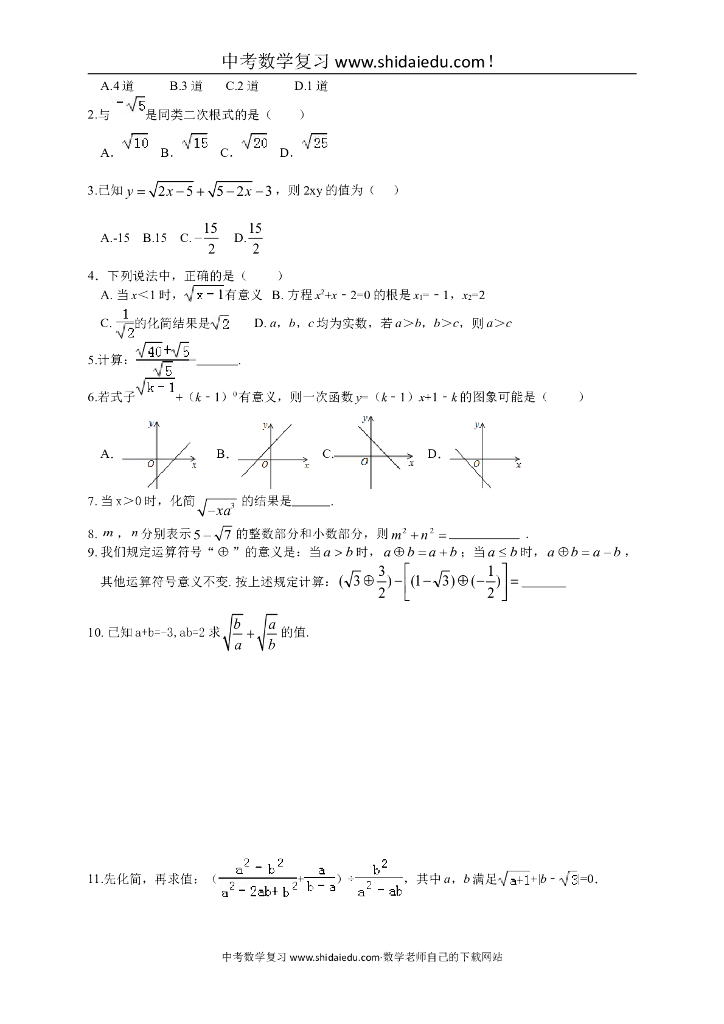 中考数学复习 www.shidaiedu.com！
A.4道 B.3道 C.2道 D.1道
2.与 -√5 是同类二次根式的是（ ）
A．√10 B．√15 C．√20 D．√25
3.已知 y = √(2x−5) + √(5−2x) −3，则 2xy 的值为（ ）
A.-15 B.15 C. −15/2 D. 15/2
4．下列说法中，正确的是（ ）
A. 当 x＜1 时，√(x−1) 有意义 B. 方程 x²+x﹣2=0 的根是 x₁=﹣1，x₂=2
C. 1/√2 的化简结果是√2 D. a，b，c 均为实数，若 a＞b，b＞c，则 a＞c
5.计算：(√40+√5)/√5 = ______.
6.若式子√(k−1)+（k﹣1）⁰有意义，则一次函数 y=（k﹣1）x+1﹣k 的图象可能是（ ）
A． y O x B． y O x C. y O x D． y O x
7. 当 x＞0 时，化简 √(−xa³) 的结果是______.
8. m，n 分别表示 5−√7 的整数部分和小数部分，则 m²+n² = ___________ .
9. 我们规定运算符号“⊕”的意义是：当 a>b 时，a⊕b=a+b；当 a≤b 时，a⊕b=a−b，
其他运算符号意义不变.按上述规定计算：(√3⊕3/2)−[(1−√3)⊕(−1/2)]= _______
10. 已知 a+b=-3,ab=2 求 √(b/a) + √(a/b) 的值.
11.先化简，再求值：（(a²−b²)/(a²−2ab+b²)+a/(b−a)）÷b²/(a²−ab)，其中 a，b 满足√(a+1)+|b﹣√3|=0.
中考数学复习 www.shidaiedu.com-数学老师自己的下载网站